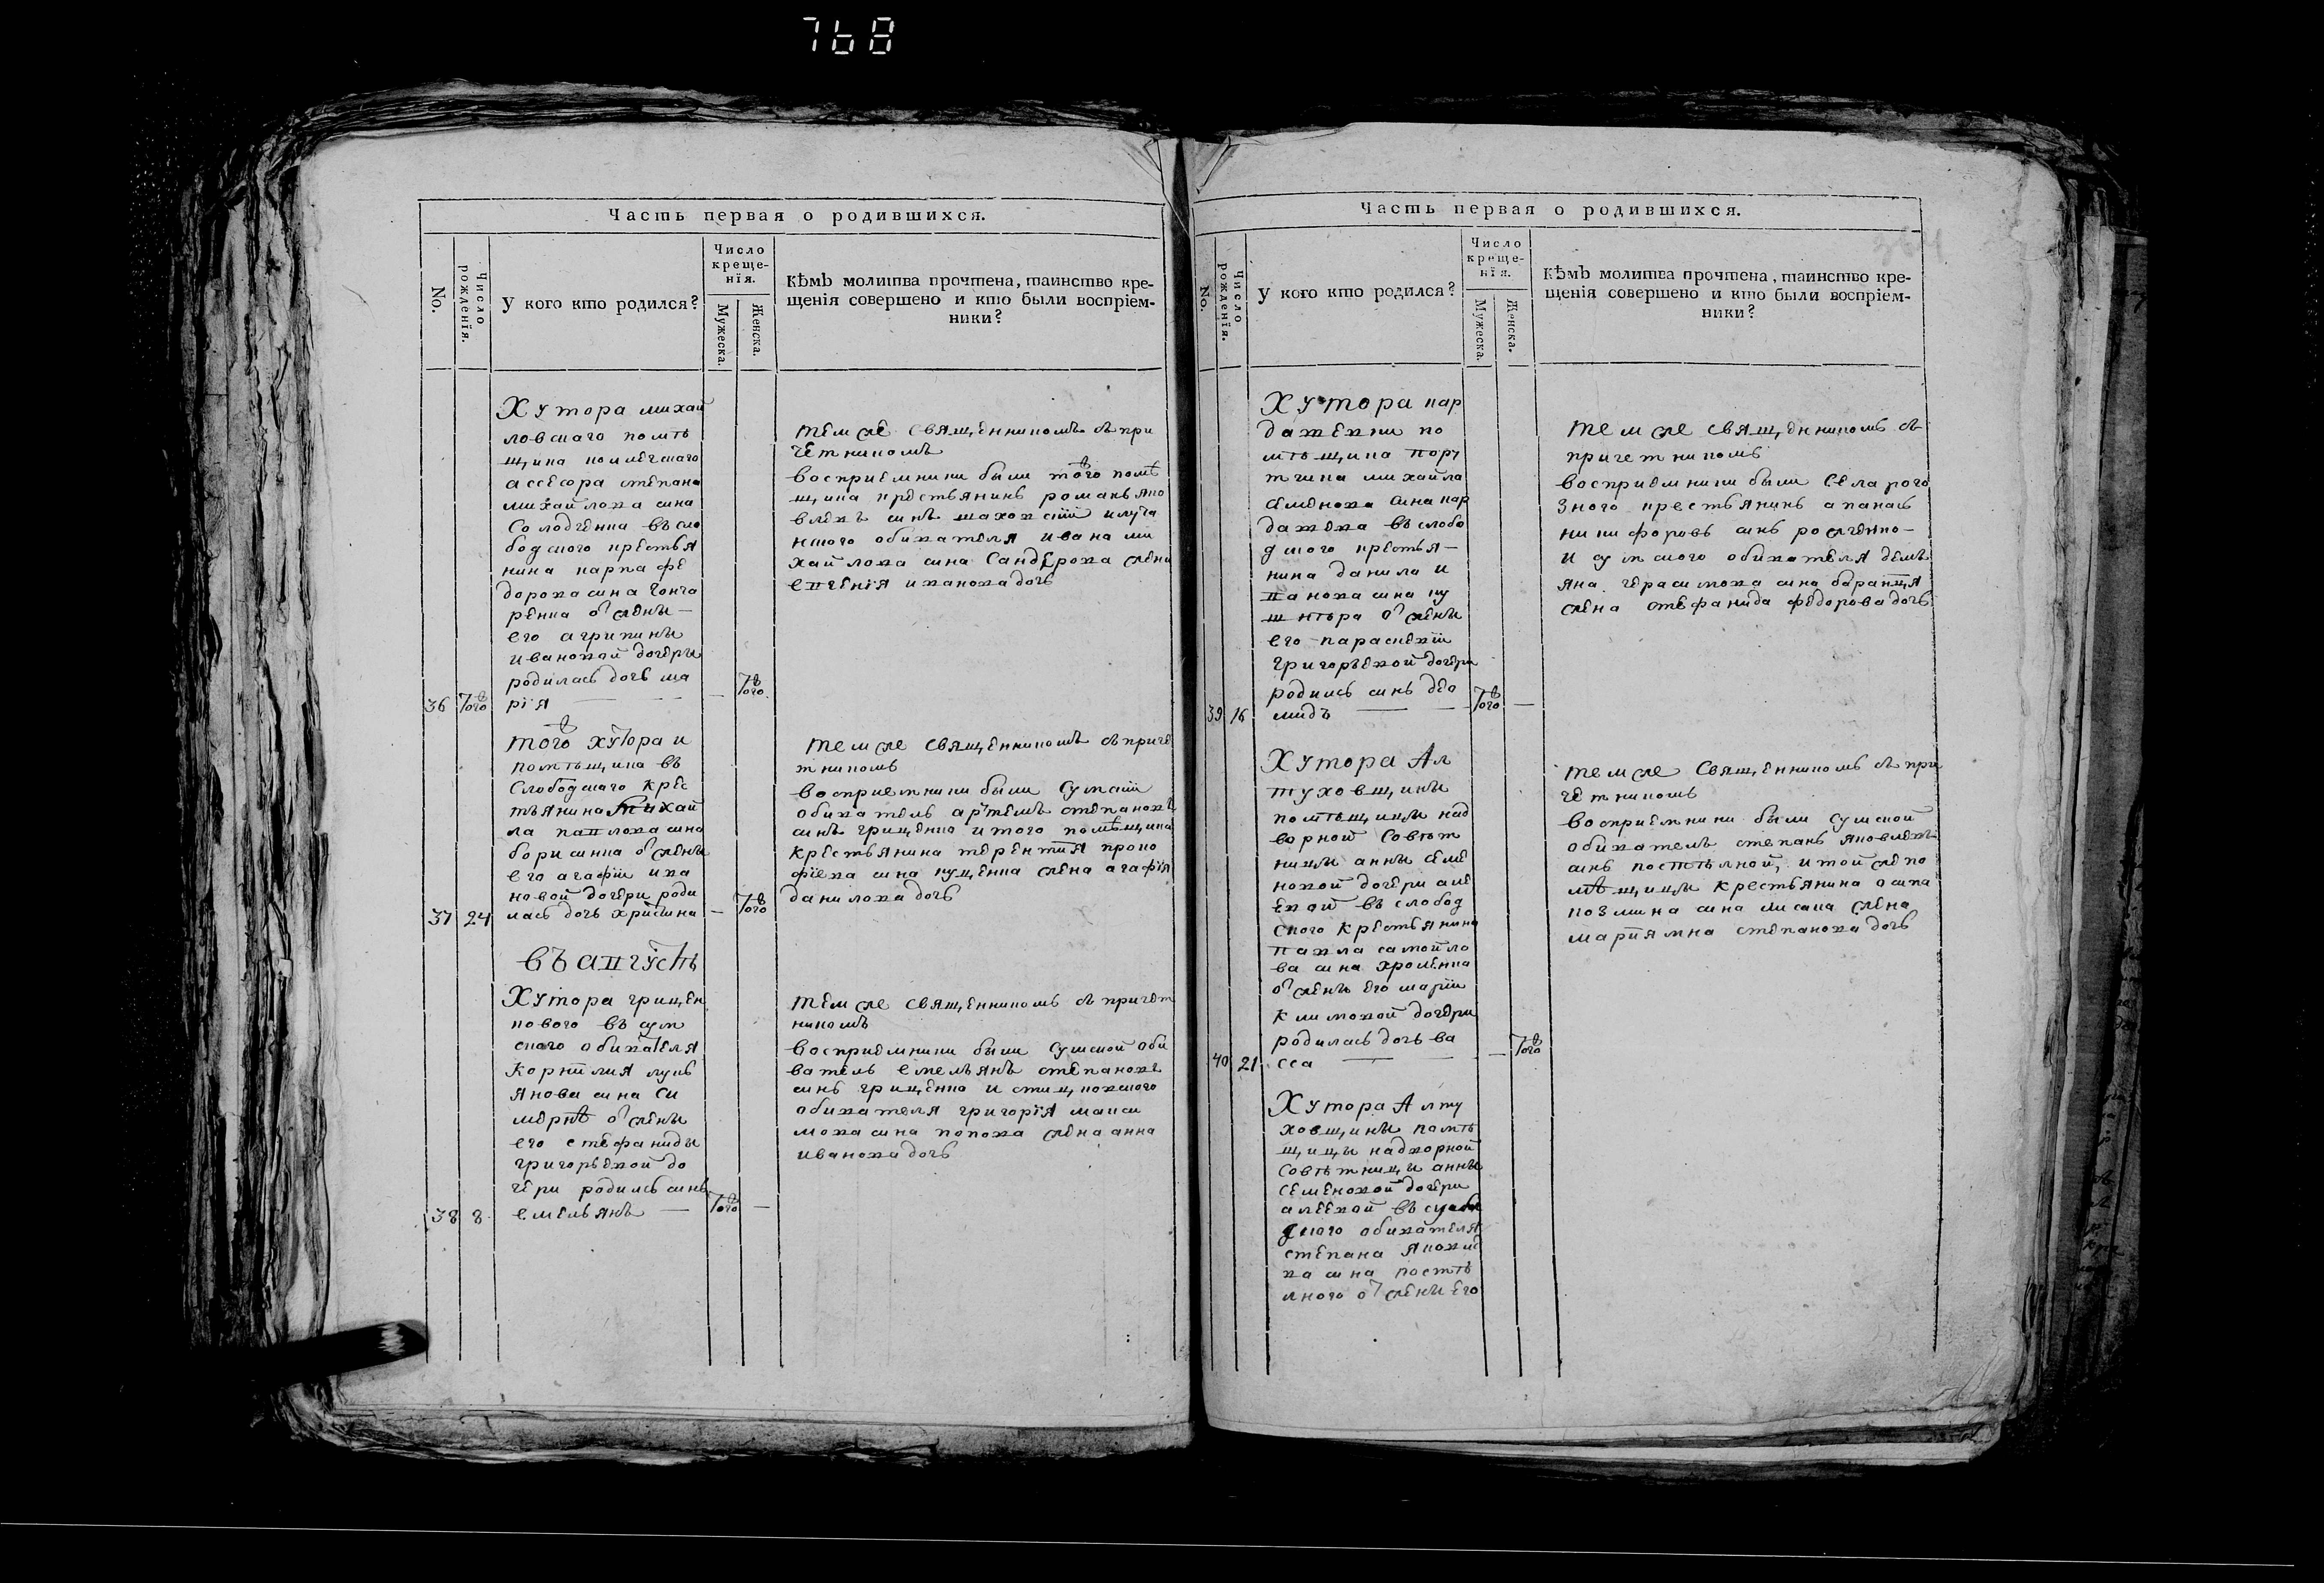 768
Часть первая о родившихся.
No.
Число рожденія.
У кого кто родился?
Число креще-
нія.
Мужеска.
Женска.
Кѣмъ молитва прочтена, таинство кре-
щенія совершено и кто были воспріем-
ники?
Хутора михай
ловскаго помѣ
щика
асесора степана
михайлова сина
Солодченка въ сло
бодского крестья
нина карпа фе
дорова сина Гонча
ренка о͡т жены —
его агрипины
ивановой дочеры
родилась дочь ма
36 тогов рія — — — тогов
темже священникомъ съ при
четникомъ
восприемники были тогов помѣ
щика крестьянинъ романъ яко
влевъ синъ
обивателя ивана ми
хайлова сина жена
евгенія иванова дочь
тогов хутора и
помѣщика въ
слободскаго крес
тьянина михай
ла павлова сина
борисинка о͡т жены
его агафіи ива
новой дочери роди
37 24 лась дочь христина — тогов
темже священникомъ съ приче
тникомъ
восприемники были Сумский
обиватель артемъ степановъ
синъ грищенко и того помѣщика
крестьянина терентия проко
фіева сина куценка жена агафія
данилова дочь
въ августѣ
Хутора грищен
кового въ сум
скаго обивателя
корнилия лукь
янова сина Си
мернѣ о͡т жены
его стефаниды
григорьевой до
чери родилсь синъ
38 8 емельянъ — тогов —
темже священникомъ съ причет
никомъ
восприемники были Сумской оби
ватель емельянъ степановъ
синъ грищенко и
обивателя григорія макси
мова сина попова жена анна
иванова дочь
Часть первая о родившихся.
No.
Число рожденія.
У кого кто родился?
Число креще-
нія.
Мужеска.
Женска.
Кѣмъ молитва прочтена, таинство кре-
щенія совершено и кто были воспріем-
ники?
Хутора кар
дашевки по
мѣщика пору
тчика михайла
семенова сина кар
дашева въ слобо
дского крестья —
нина данила и
ванова сина ку
шнѣра о͡т жены
его параскевіи
григорьевой дочери
родилсь синъ део
39 16 мидъ — — — тогов —
темже священникомъ съ
причетникомъ
восприемники были Села рого
зного крестьянинъ апанасъ
никифоровъ синъ
и сумского обивателя демь
яна герасимова сина баранця
жена стефанида федорова дочь
Хутора Ал
туховщины
помѣщицы над
ворной совѣт
ницы анны семе
новой дочери але
евой въ слобод
ского крестьянина
павла самойло
ва сина хроменка
о͡т жены его маріи
климовой дочери
родилась дочь ва
40 21 сса — — — тогов
темже священникомъ съ при
четникомъ
восприемники были сумской
обиватель степанъ яковлевъ
синъ постѣлной, и той же по
мѣщицы крестьянина осипа
козмина сина лисака жена
мариямна степанова дочь
Хутора Алту
ховщины помѣ
щицы надворной
совѣтницы анны
семеновой дочери
алеевой въ
дского обивателя
степана яковле
ва сина постѣ
лного о͡т жены его